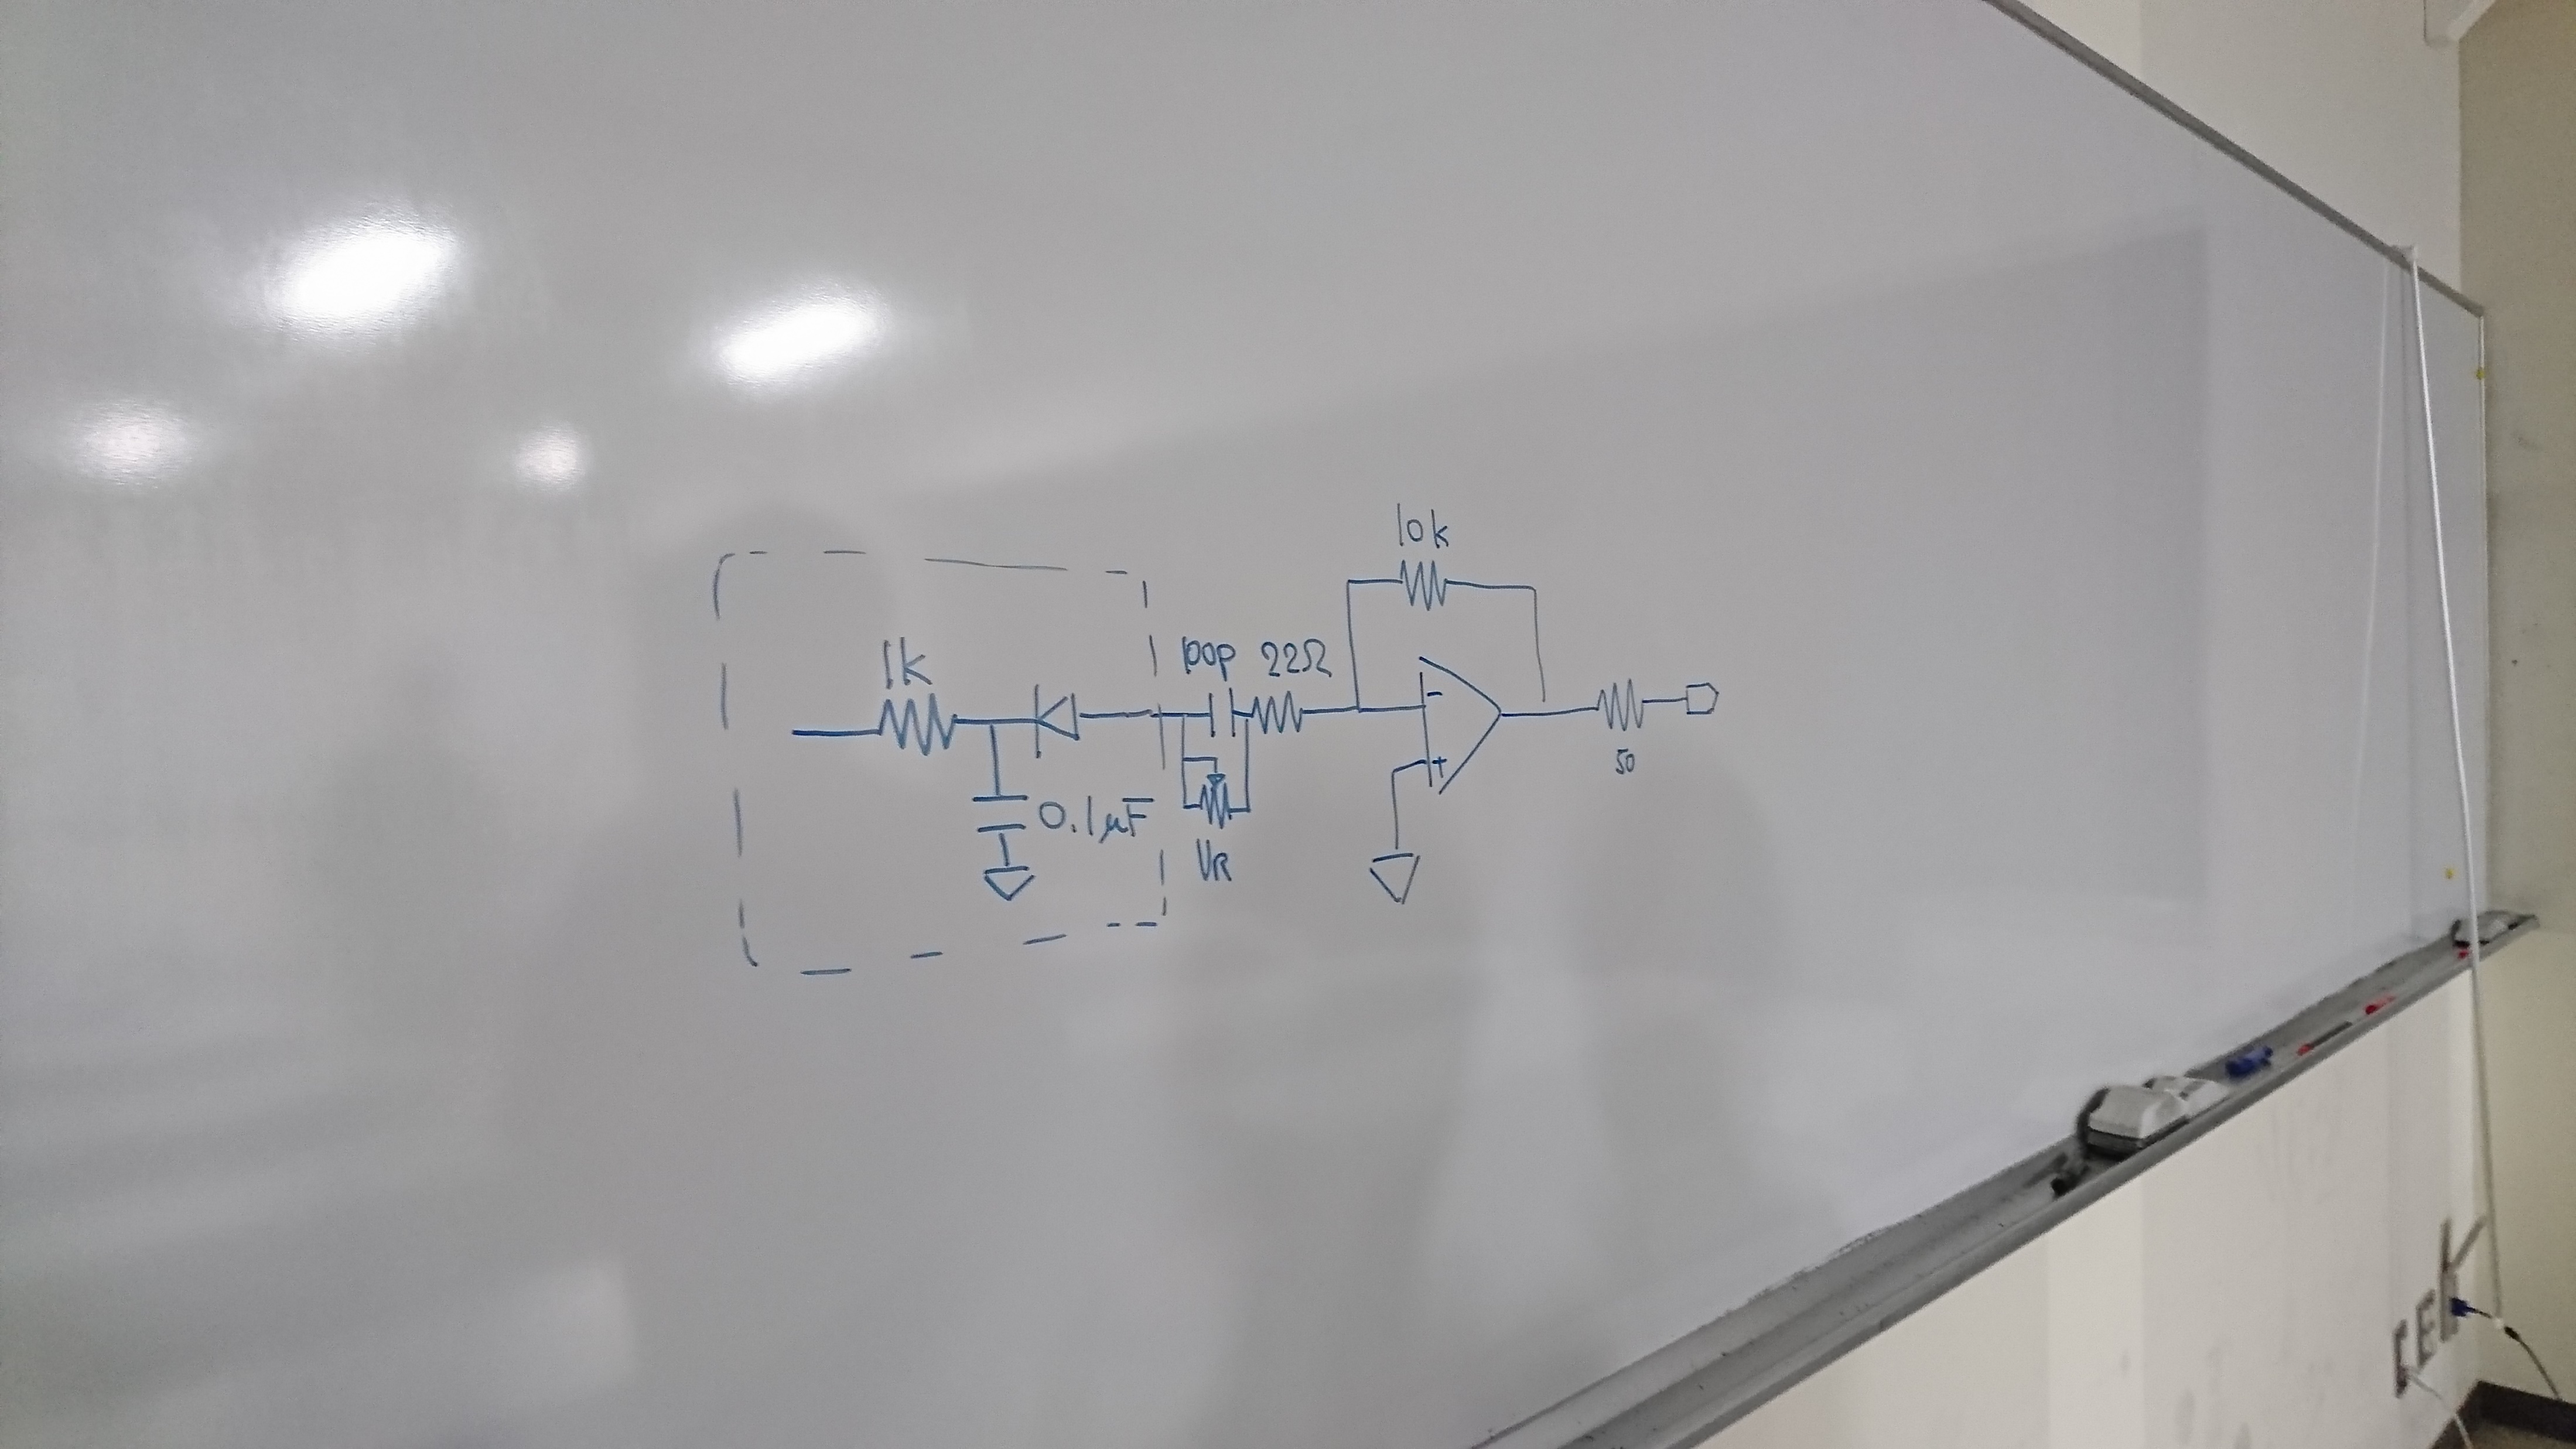 10k
1k
100p 22Ω
-
50
+
0.1μF
VR